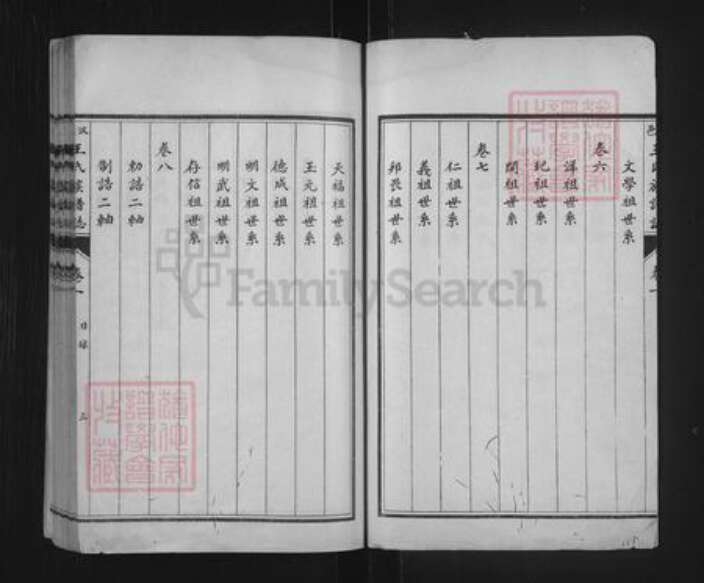 文學祖世系
卷六
詳祖世系
玘祖世系
閏祖世系
卷七
仁祖世系
義祖世系
邦長祖世系
天福祖世系
王元祖世系
德成祖世系
明文祖世系
明武祖世系
存信祖世系
卷八
勅誥二軸
制誥二軸
王氏族譜誌
卷一
目錄
三
FamilySearch